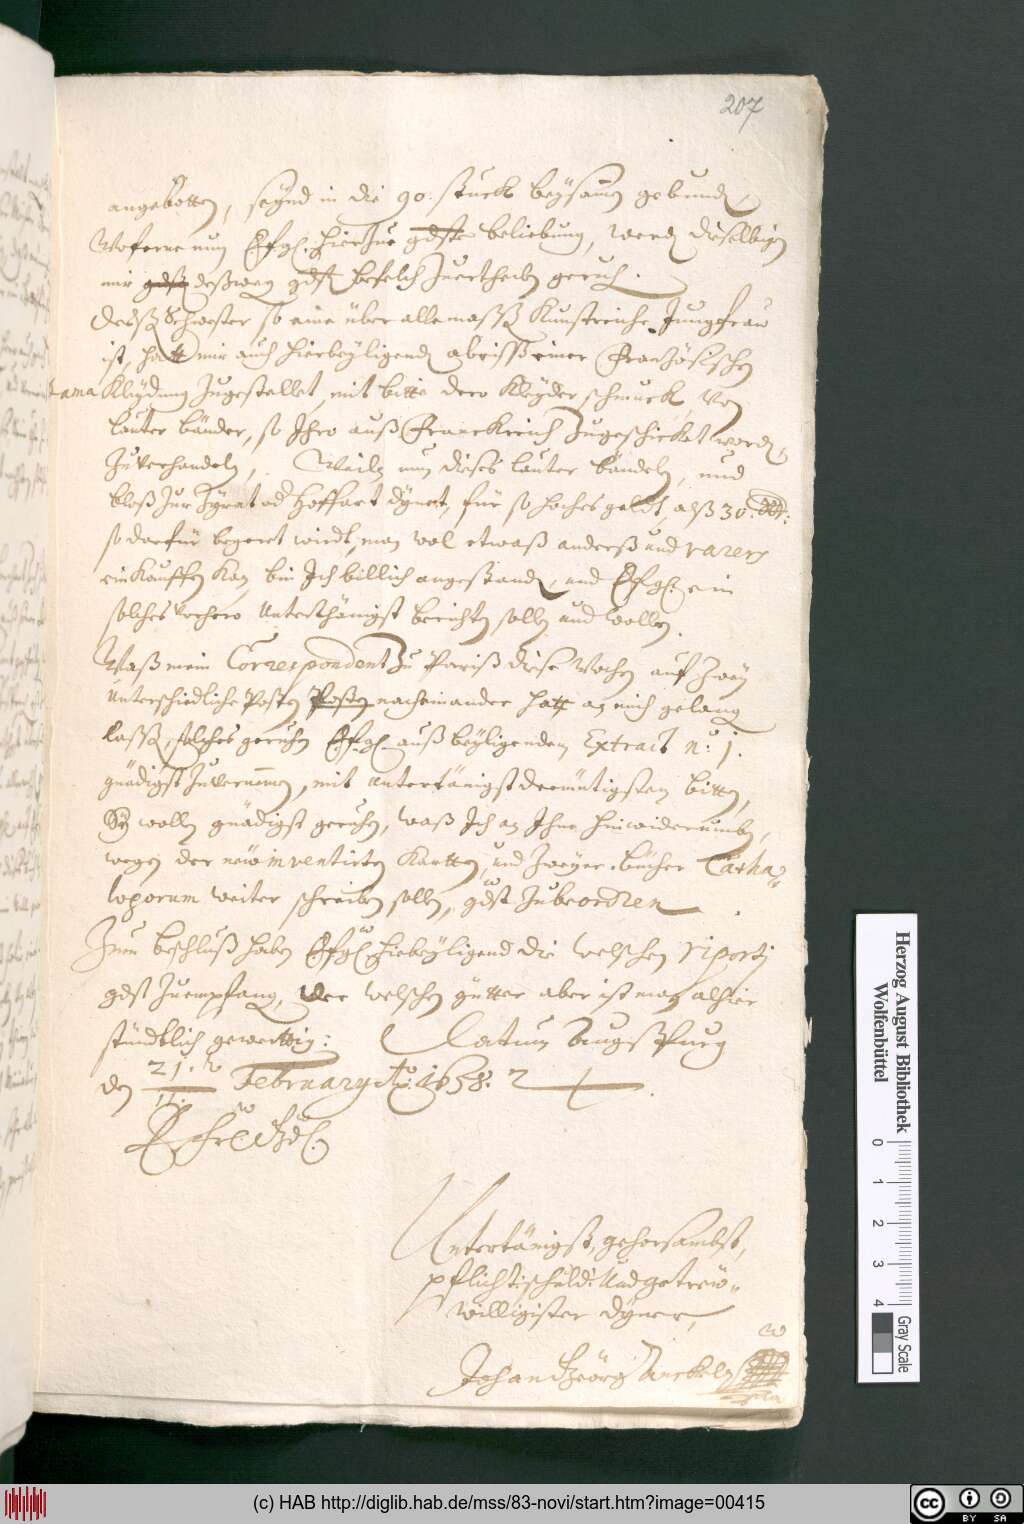 207
angebotten, seynd in die 90. stuckh beysamen gebunden,
Woferne nun E. f. gl. hierzue gdste beliebung, werden dieselbigen
mir gdst deßweg gdst befelch zuertheilen geruhen.
Deroß Schwester so eine über alle maßß Kunstreiche Jungfraw
ist, hatt mir auch hierbeyligenden abrisß einer Französischen
Dama Kleydung zugestellet, mit bitte dero Kleyder schmuckh, von
lauter bänder, so Ihro auß Franckreich zugeschicket worden,
zuverhandeln, Weiln nun dieses lauter bändeln, und
bloß zur Zyrat und Hoffart dynet, für so hoches geldt, alß 30.
so darfür begeret wirdt, man wol etwaß anderß und rarers
einkauffen kan, bin Ich billich angestanden, und E. f. gl. ein
solches vorhero Unterthänigst berichten sollen und wollen.
Waß mein Correspondent zu Pariß diese Wochen auf zwey
Unterschiedliche Posten Posten nacheinander hatt an mich gelang
lasß, solches geruhen E. f. gl. auß beyligendem Extract n.º 1.
gnädigst zuvernemen, mit untertänigst demütigsten bitten,
Sy wollen gnädigst geruhen, waß Ich an Ihne hinwiderumben,
wegen der new inventirten Kartten, und zweyer bücher Catha-
logorum weiter schreiben sollen, gdst zubeordren
Zum beschluß haben E. f. gl. hiebeyligend die welschen riporti
gdst zuempfang, Der welschen gütter aber ist man alhier
stündtlich gewerttig: Datum Augspurg
den 21./11. February Aº. 1658.
E. frl. Gdl.
Untertänigst, gehorsambst,
pflichtschuld: Und getrew-
willigister dyner,
Johan Georg Anckel
Herzog August Bibliothek
Wolfenbüttel
0 1 2 3 4
Gray Scale
(c) HAB http://diglib.hab.de/mss/83-novi/start.htm?image=00415
cc BY SA